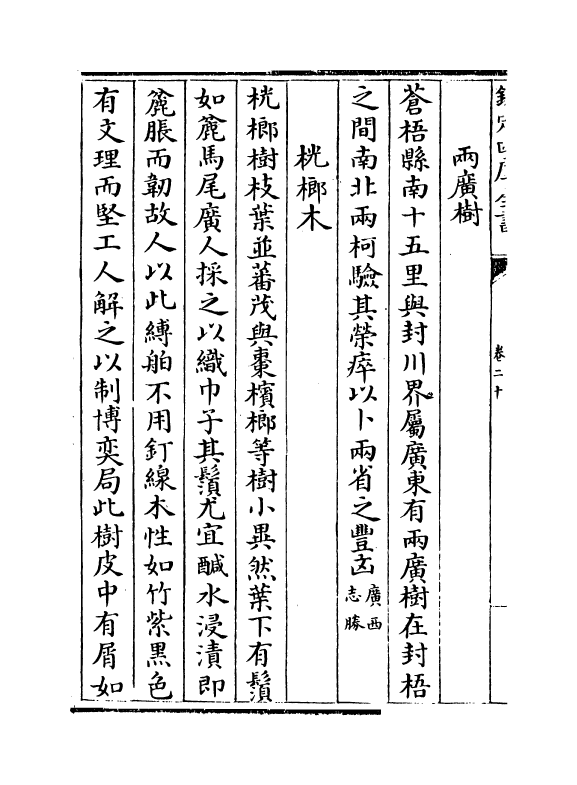 欽定四庫全書
卷二十
兩廣樹
蒼梧縣南十五里與封川界屬廣東有兩廣樹在封梧
之間南北兩柯驗其榮瘁以卜兩省之豐凶廣西
志勝
桄榔木
桄榔樹枝葉並蕃茂與棗檳榔等樹小異然葉下有鬚
如麄馬尾廣人採之以織巾子其鬚尤宜鹹水浸漬即
麄脹而韌故人以此縛舶不用釘線木性如竹紫黑色
有文理而堅工人解之以制博奕局此樹皮中有屑如